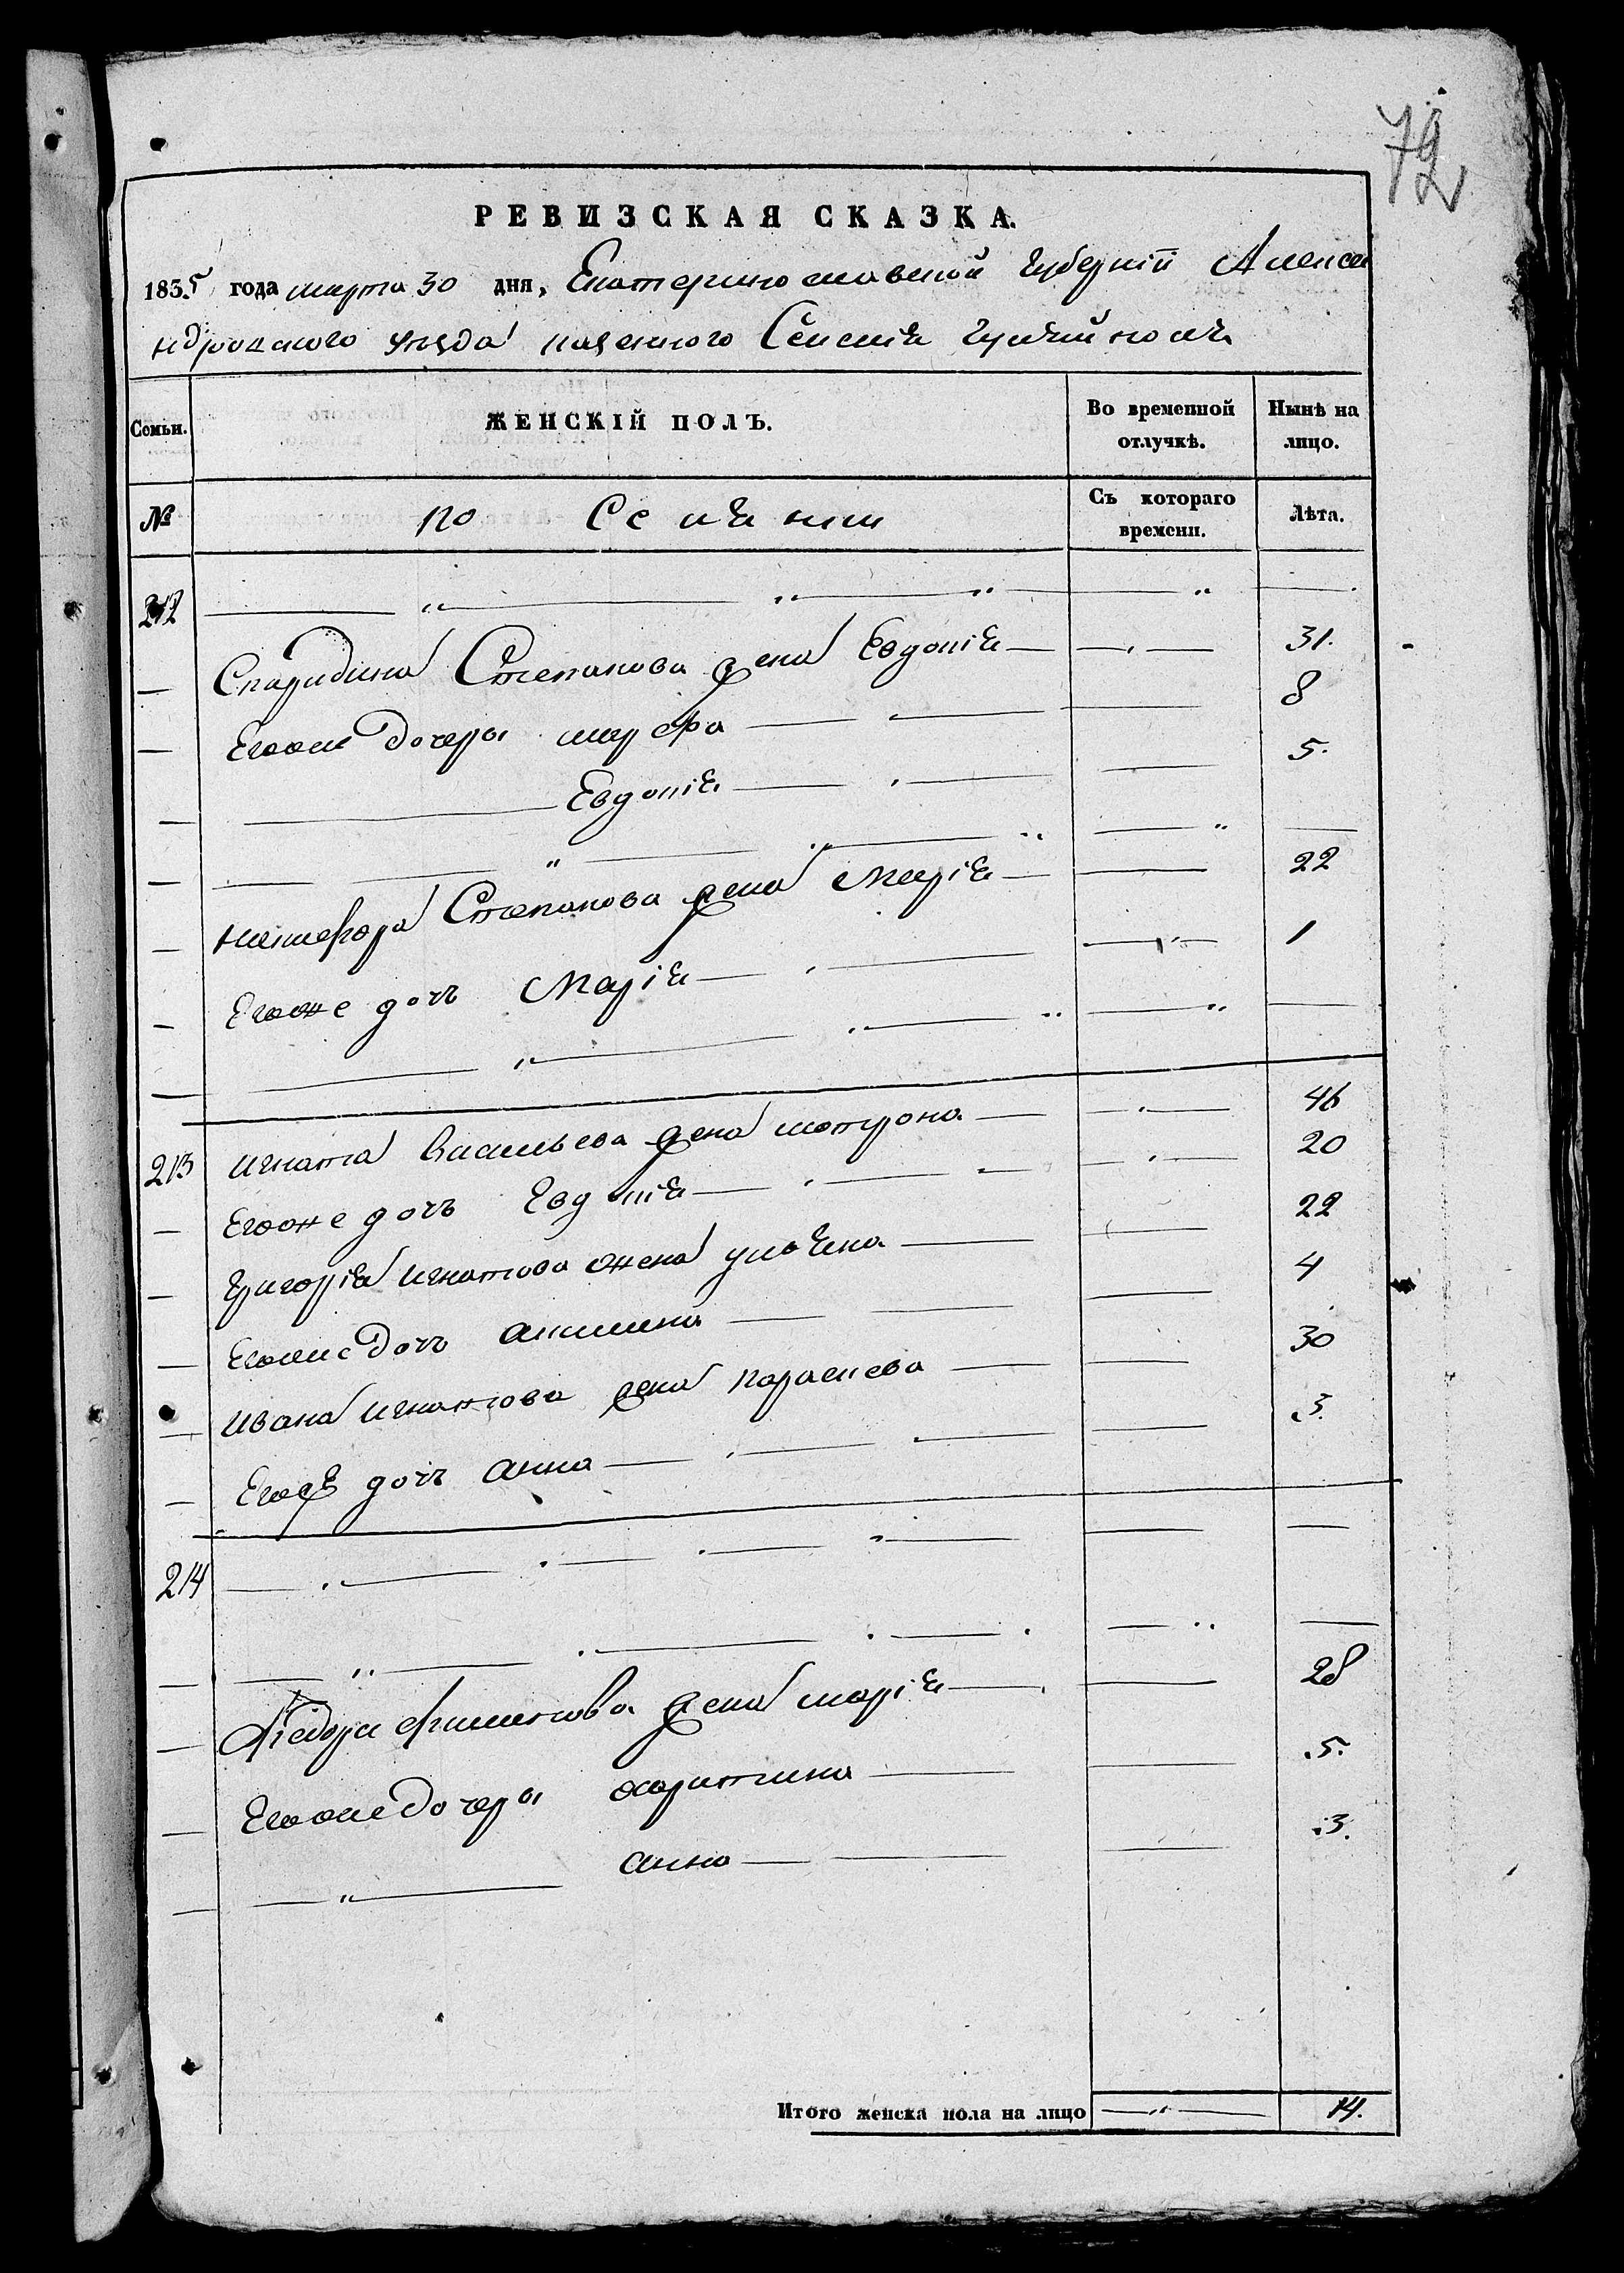 72
РЕВИЗСКАЯ СКАЗКА.
1835 года марта 30 дня, Екатеринославской Губерніи Алекса
ндровского уѣзда казенного Селенія Гуляйполя
Семьи. ЖЕНСКІЙ ПОЛЪ. Во временной отлучкѣ. Нынѣ на лицо.
№ Поселяни Съ котораго времени. Лѣта.
212
Спиридона Степанова жена Евдокія 31.
Егоже дочеры марфа 8
Евдокія 5.
Никифора Степанова жена Марія 22
Егоже дочь Марія 1
213 игната Васильева жена мотрона 46
Егоже дочь Евдокія 20
Григорія игнатова жена ульяна 22
Егоже дочь акилина 4
ивана игнатова жена параскева 30
Егоже дочь анна 3.
214
Федора жена марія 28
Егоже дочеры харитина 5.
анна 3.
Итого женска пола на лицо 14.